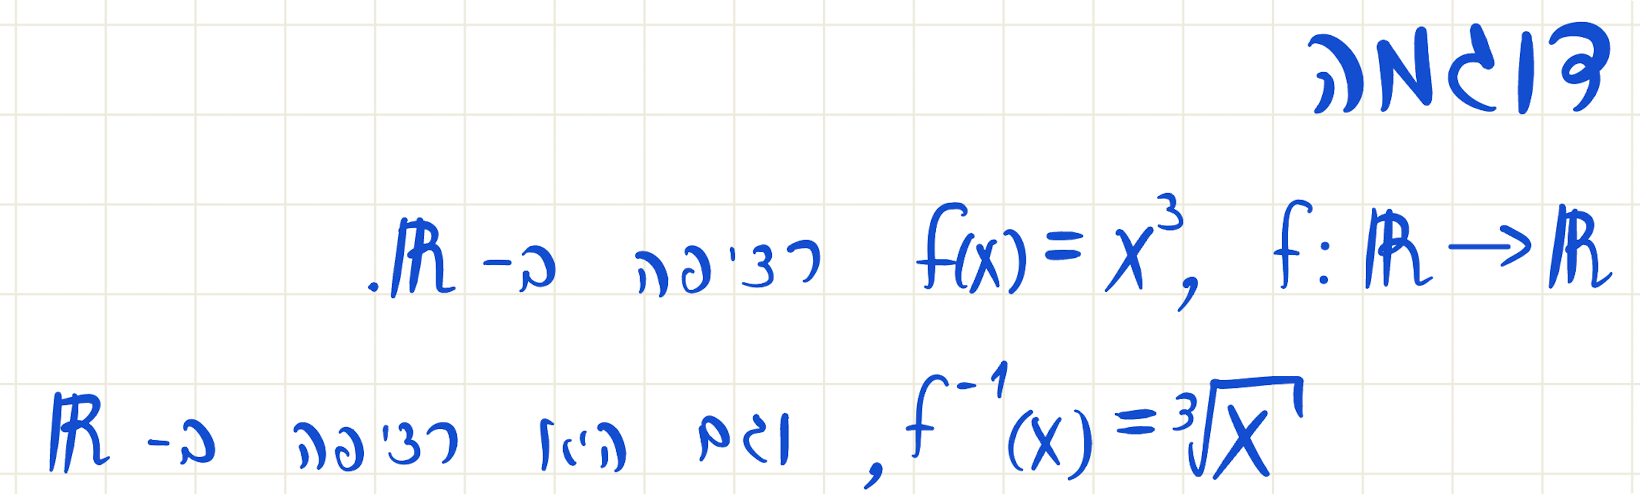 דוגמה
f: ℝ → ℝ, f(x) = x³ רציפה ב- ℝ.
f⁻¹(x) = ∛x, וגם היא רציפה ב- ℝ